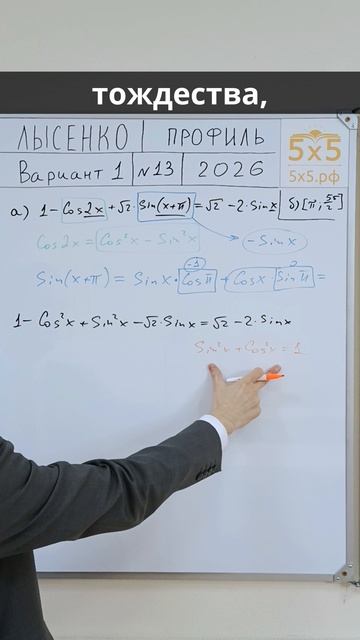 тождества,
ЛЫСЕНКО ПРОФИЛЬ
Вариант 1 №13 2026
5х5
5х5.рф
а) 1-Cos2x+√2·Sin(x+π)=√2-2·Sinx б)[π;5π/2]
Cos2x=Cos²x-Sin²x -Sinx
(-1)
Sin(x+π)=Sinx·Cosπ+Cosx·Sinπ=
1-Cos²x+Sin²x-√2·Sinx=√2-2·Sinx
Sin²x+Cos²x=1